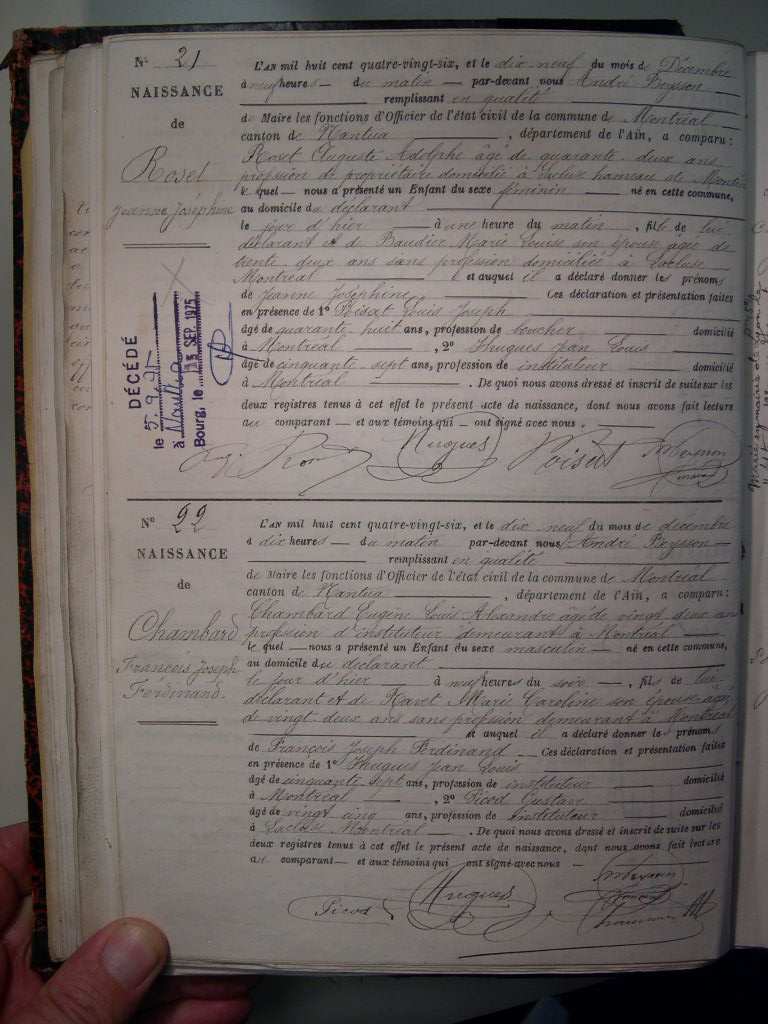 N° 21
NAISSANCE
de
Roset
Jeanne Joséphine
L'AN mil huit cent quatre-vingt-six, et le dix neuf du mois de Décembre
à neuf heures — du matin — par-devant nous André Peysson
remplissant en qualité
de Maire les fonctions d'Officier de l'état civil de la commune de Montréal
canton de Nantua, département de l'Ain, a comparu :
Roset Auguste Adolphe âgé de quarante deux ans
profession de propriétaire domicilié à Lécluse hameau de Montréal
le quel — nous a présenté un Enfant du sexe féminin — né en cette commune,
au domicile du déclarant
le jour d'hier à une heure du matin, fille de lui
déclarant et de Baudier Marie Louise son épouse âgée de
trente deux ans sans profession domiciliée à Lécluse
Montréal et auquel il a déclaré donner les prénoms
de Jeanne Joséphine Ces déclaration et présentation faites
en présence de 1° Poisat Louis Joseph
âgé de quarante huit ans, profession de boucher domicilié
à Montréal, 2° Hugues Jean Louis
âgé de cinquante sept ans, profession de instituteur domicilié
à Montréal. De quoi nous avons dressé et inscrit de suite sur les
deux registres tenus à cet effet le présent acte de naissance, dont nous avons fait lecture
au comparant — et aux témoins qui — ont signé avec nous.
Hugues Poisat
DÉCÉDÉ
le 5.9.75
à
Bourg, le 15 SEP. 1975
N° 22
NAISSANCE
de
Chambard
François Joseph
Ferdinand
L'AN mil huit cent quatre-vingt-six, et le dix neuf du mois de decembre
à dix heures — du matin par-devant nous André Peysson
remplissant en qualité
de Maire les fonctions d'Officier de l'état civil de la commune de Montréal
canton de Nantua, département de l'Ain, a comparu :
Chambard Eugène Louis Alexandre âgé de vingt deux ans
profession d'instituteur demeurant à Montréal
le quel — nous a présenté un Enfant du sexe masculin — né en cette commune,
au domicile du déclarant
le jour d'hier à neuf heures du soir —, fils de lui
déclarant et de Ravet Marie Caroline son épouse âgée
de vingt deux ans sans profession demeurant à Montréal
et auquel il a déclaré donner les prénoms
de François Joseph Ferdinand Ces déclaration et présentation faites
en présence de 1° Hugues Jean Louis
âgé de cinquante sept ans, profession de instituteur domicilié
à Montréal, 2° Picod Gustave
âgé de vingt cinq ans, profession de instituteur domicilié
à Lécluse Montréal. De quoi nous avons dressé et inscrit de suite sur les
deux registres tenus à cet effet le présent acte de naissance, dont nous avons fait lecture
au comparant — et aux témoins qui ont signé avec nous
Picod Hugues